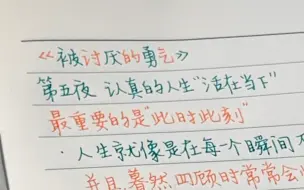 《被讨厌的勇气》
第五夜 认真的人生“活在当下”
最重要的是“此时此刻”
·人生就像是在每个瞬间不
并且蓦然四顾时常常会